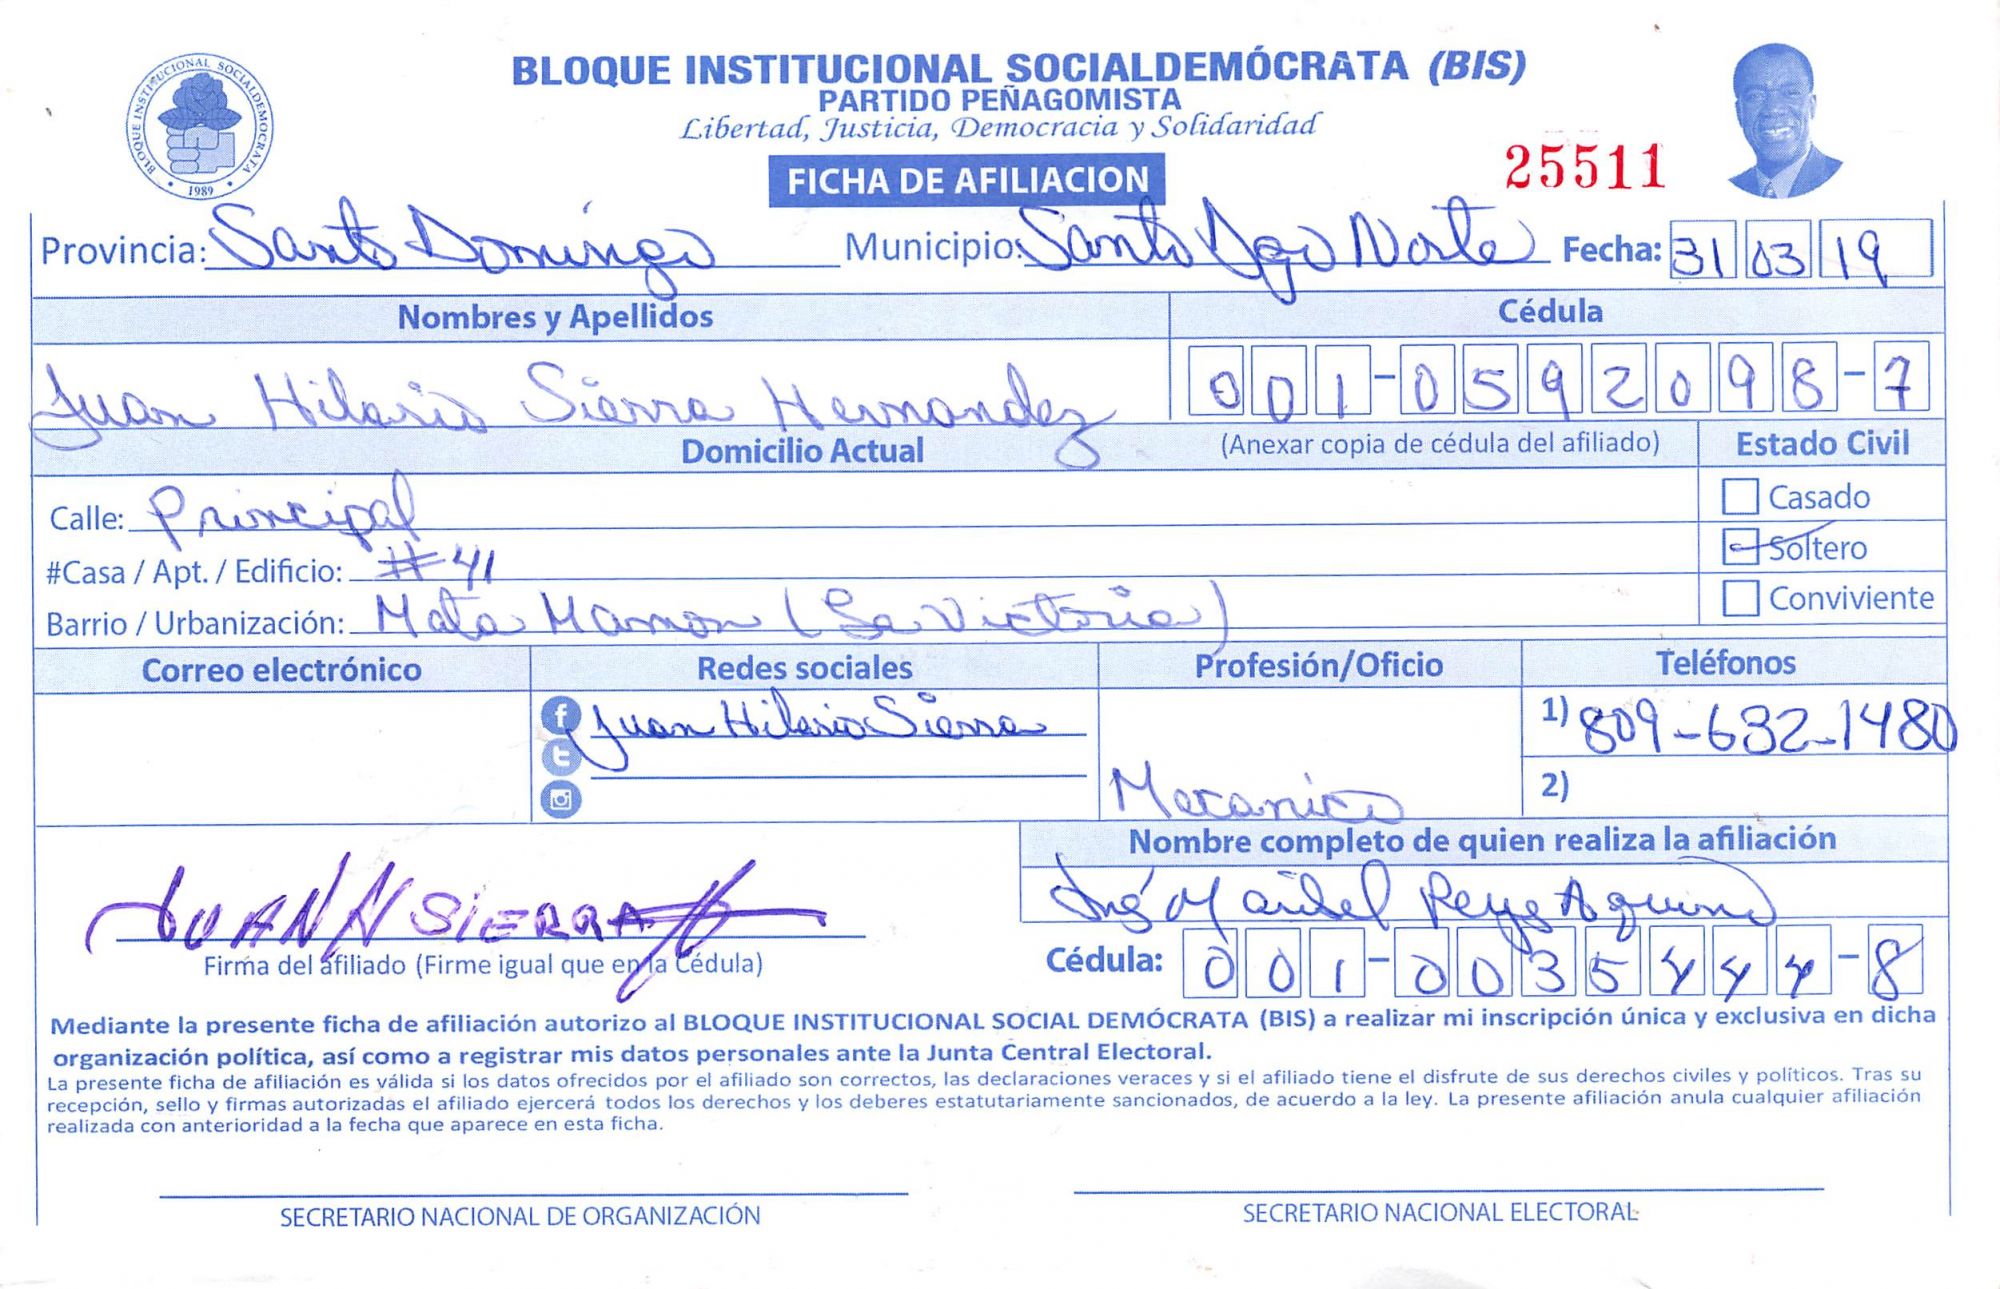 BLOQUE INSTITUCIONAL SOCIALDEMÓCRATA (BIS)
PARTIDO PEÑAGOMISTA
Libertad, Justicia, Democracia y Solidaridad
BLOQUE INSTITUCIONAL SOCIALDEMOCRATA
1989
FICHA DE AFILIACION
25511
Provincia: Santo Domingo Municipio: Santo Dgo Norte Fecha: 31 03 19
Nombres y Apellidos Cédula
Juan Hilario Sierra Hernandez 001-0592098-7
Domicilio Actual (Anexar copia de cédula del afiliado) Estado Civil
Calle: Principal Casado
#Casa / Apt. / Edificio: #41 Soltero
Barrio / Urbanización: Mata Mamon (La Victoria) Conviviente
Correo electrónico Redes sociales Profesión/Oficio Teléfonos
Juan Hilario Sierra Mecanico 1) 809-632-1480
2)
Nombre completo de quien realiza la afiliación
Ing Maribel Reyes Aquino
JUAN H SIERRA H
Firma del afiliado (Firme igual que en la Cédula) Cédula: 001-0035444-8
Mediante la presente ficha de afiliación autorizo al BLOQUE INSTITUCIONAL SOCIAL DEMÓCRATA (BIS) a realizar mi inscripción única y exclusiva en dicha
organización política, así como a registrar mis datos personales ante la Junta Central Electoral.
La presente ficha de afiliación es válida si los datos ofrecidos por el afiliado son correctos, las declaraciones veraces y si el afiliado tiene el disfrute de sus derechos civiles y políticos. Tras su
recepción, sello y firmas autorizadas el afiliado ejercerá todos los derechos y los deberes estatutariamente sancionados, de acuerdo a la ley. La presente afiliación anula cualquier afiliación
realizada con anterioridad a la fecha que aparece en esta ficha.
SECRETARIO NACIONAL DE ORGANIZACIÓN SECRETARIO NACIONAL ELECTORAL